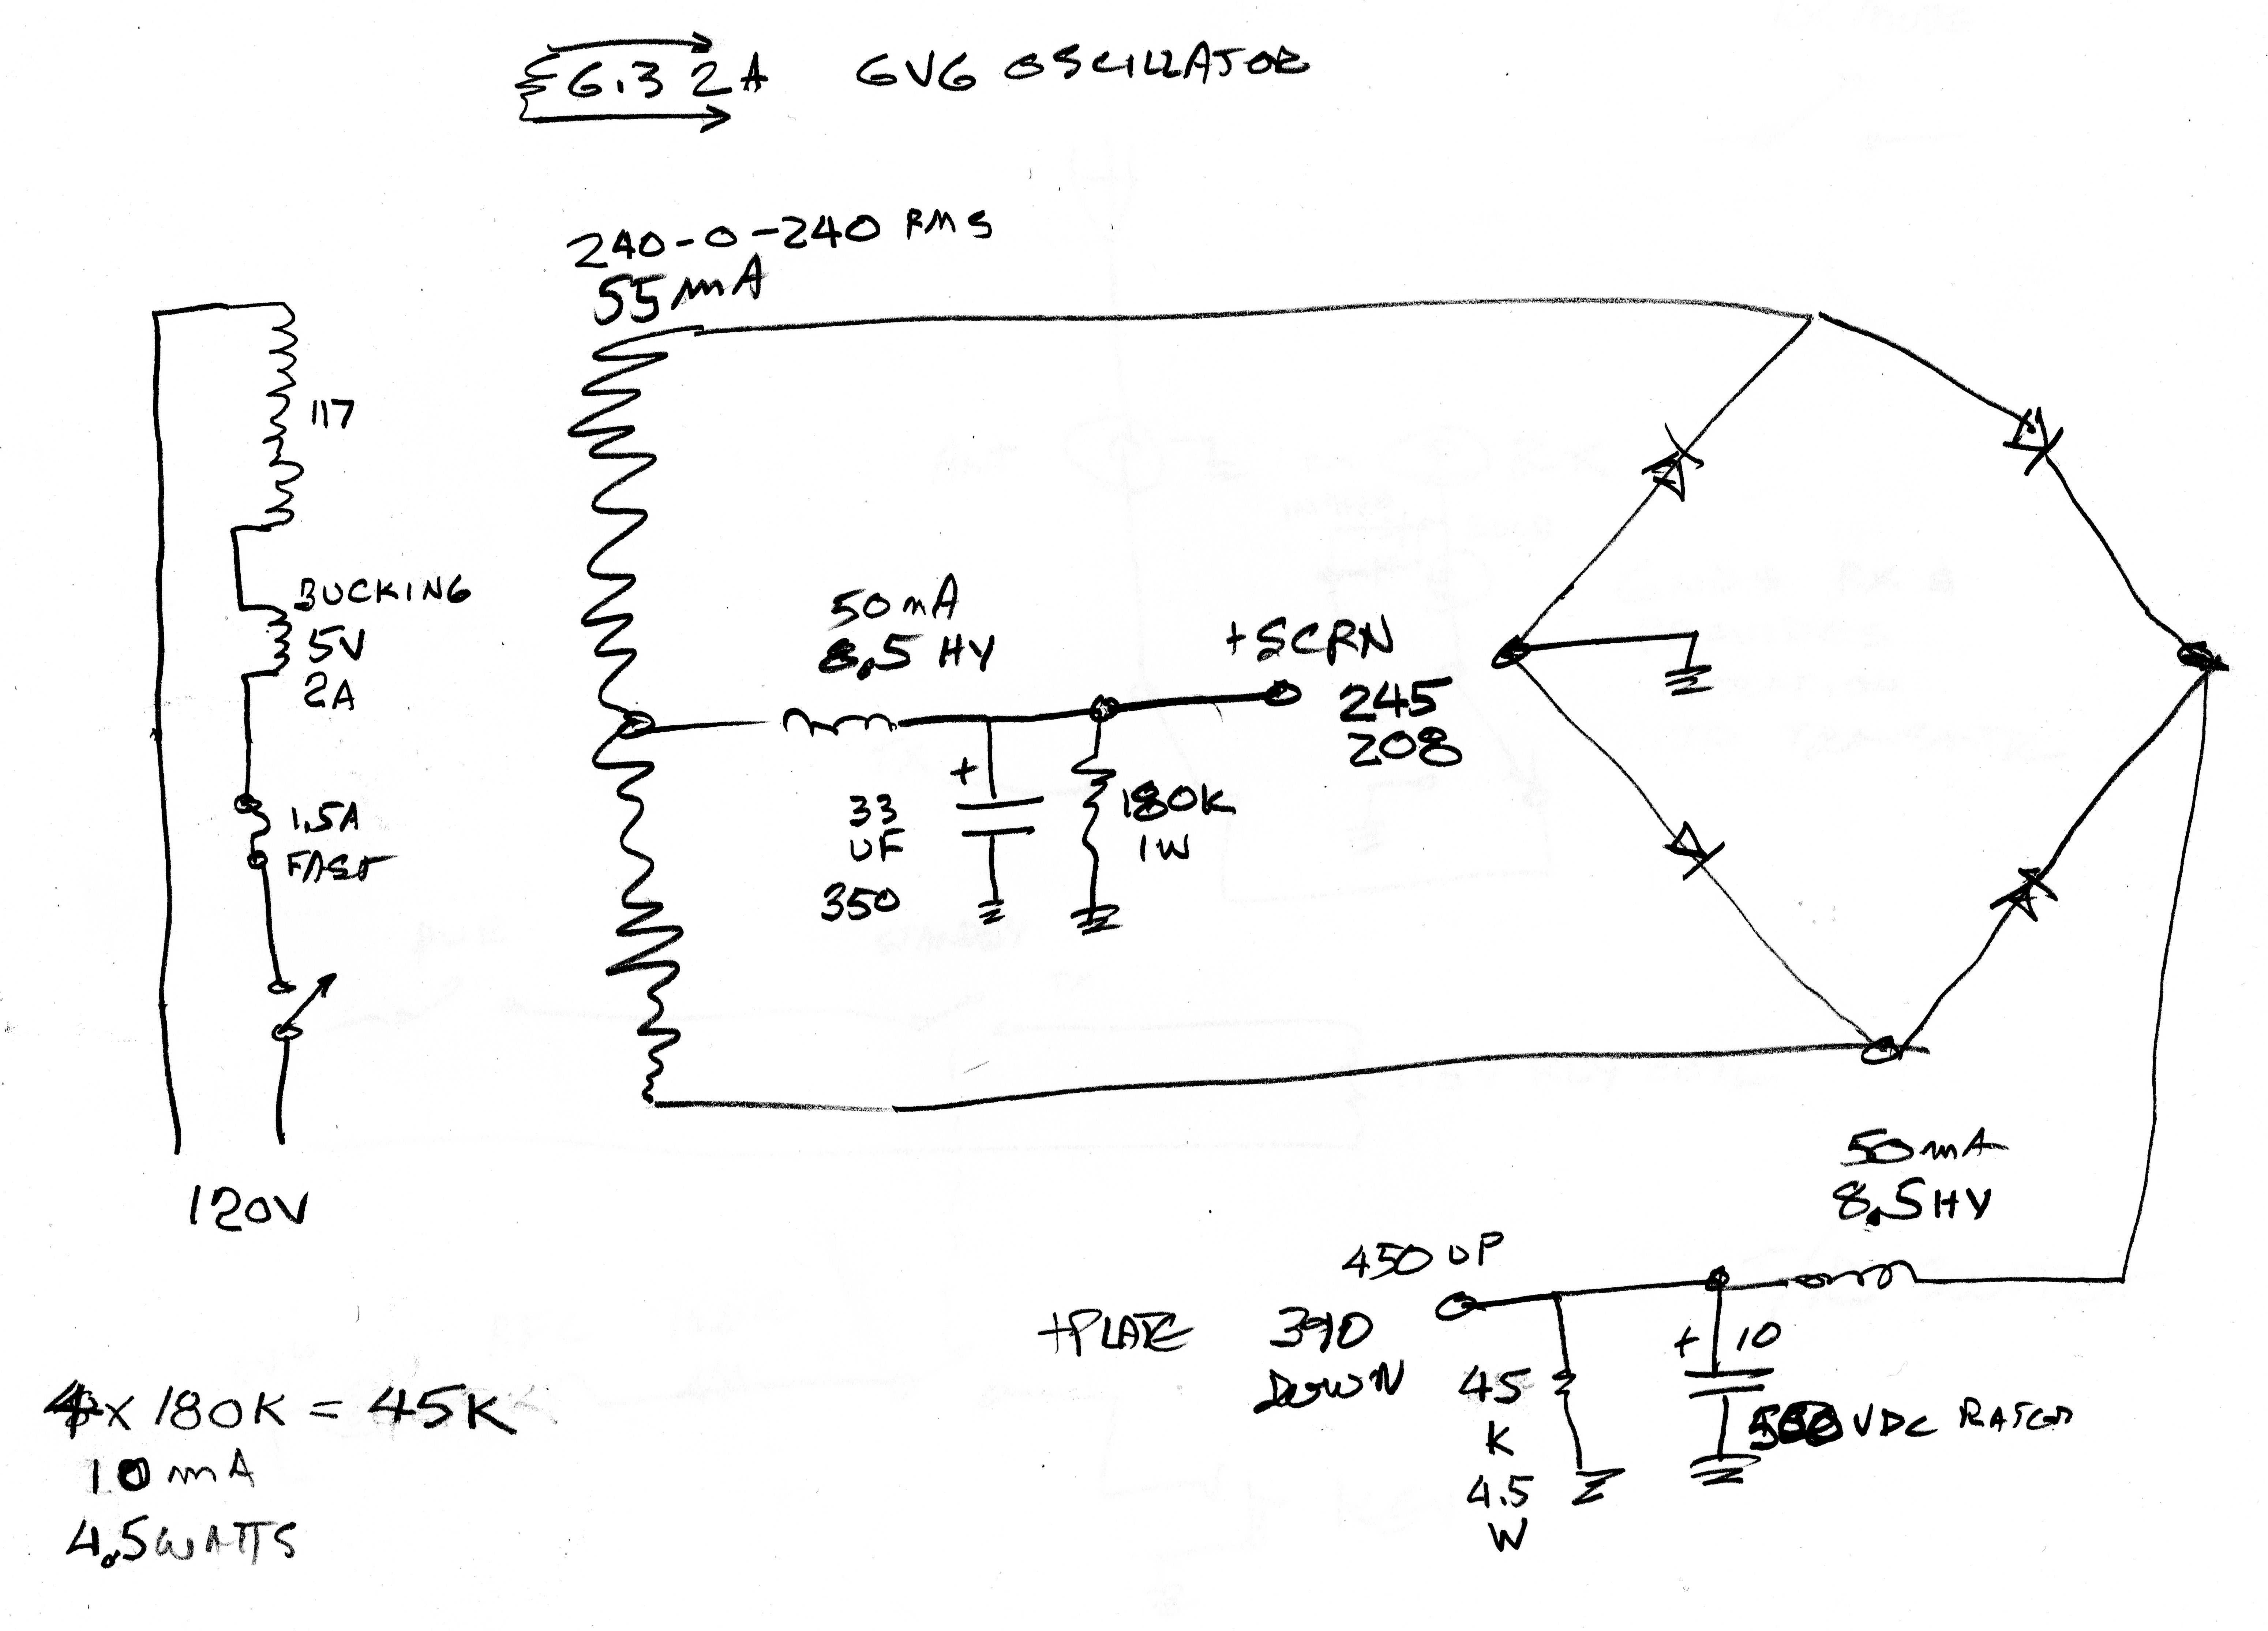 6.3 2A 6V6 OSCILLATOR
240-0-240 RMS
55 mA
117
BUCKING
5V
2A
1.5A
FAST
120V
50 mA
8.5 HY
+SCRN
245
208
+
33
UF
350
180K
1W
50 mA
8.5 HY
450 UP
+PLATE 390
DOWN
45
K
4.5
W
+ 10
500 VDC RATED
4 x 180K = 45K
10 mA
4.5 WATTS